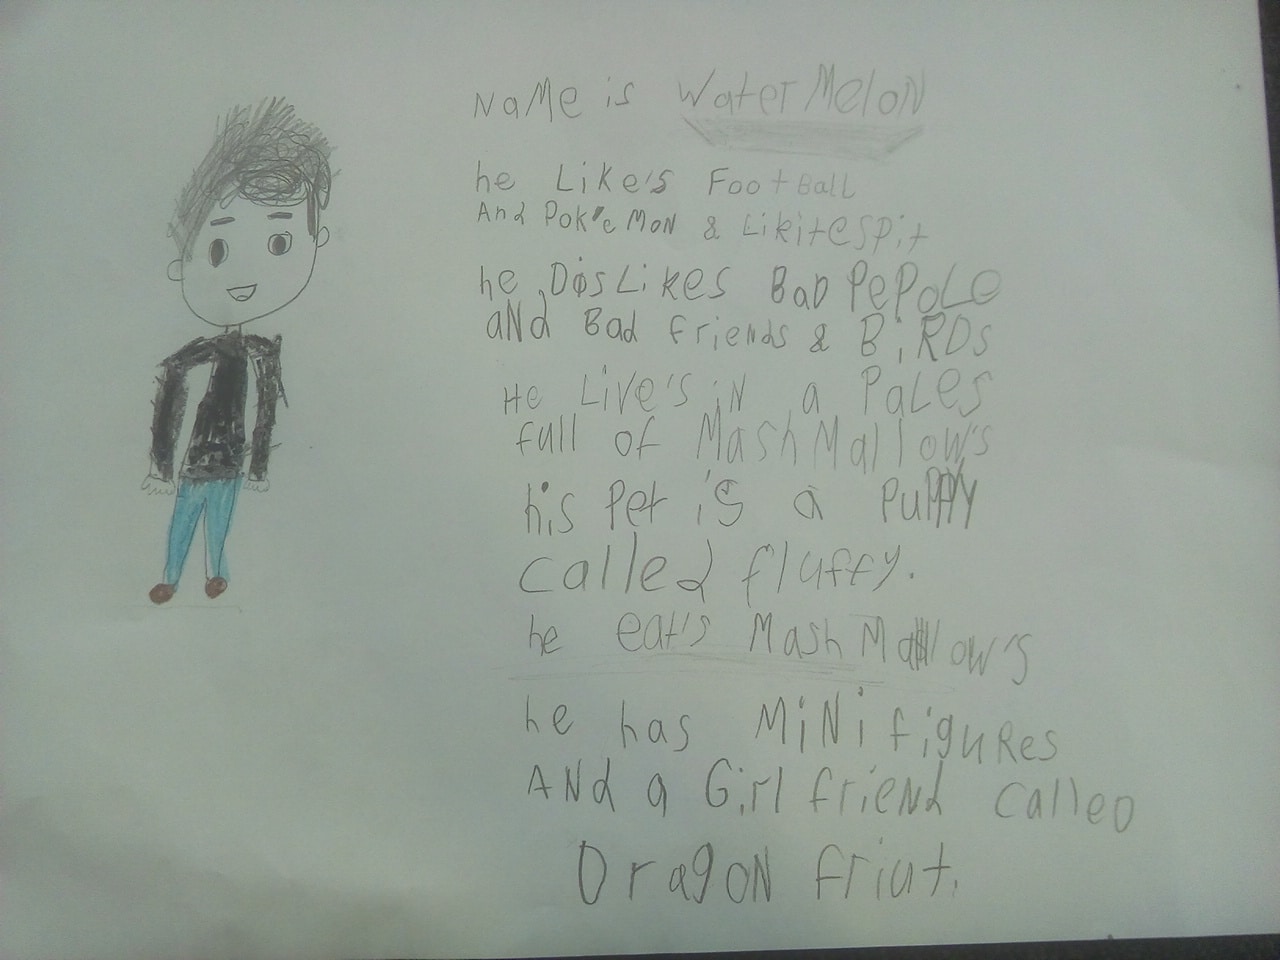 NaMe is WaterMeloN
he Like's FootBaLL
And Pok'e MoN & Likitespit
he DisLikes BaD PePoLe
aNd Bad friends & BiRDs
He Live's iN a PaLes
full of MashMallow's
his Pet is a PuPPY
called fluffy.
he eat's MashMallow's
he has MiNi figuRes
ANd a Girl frieNd calleD
DragoN friut.